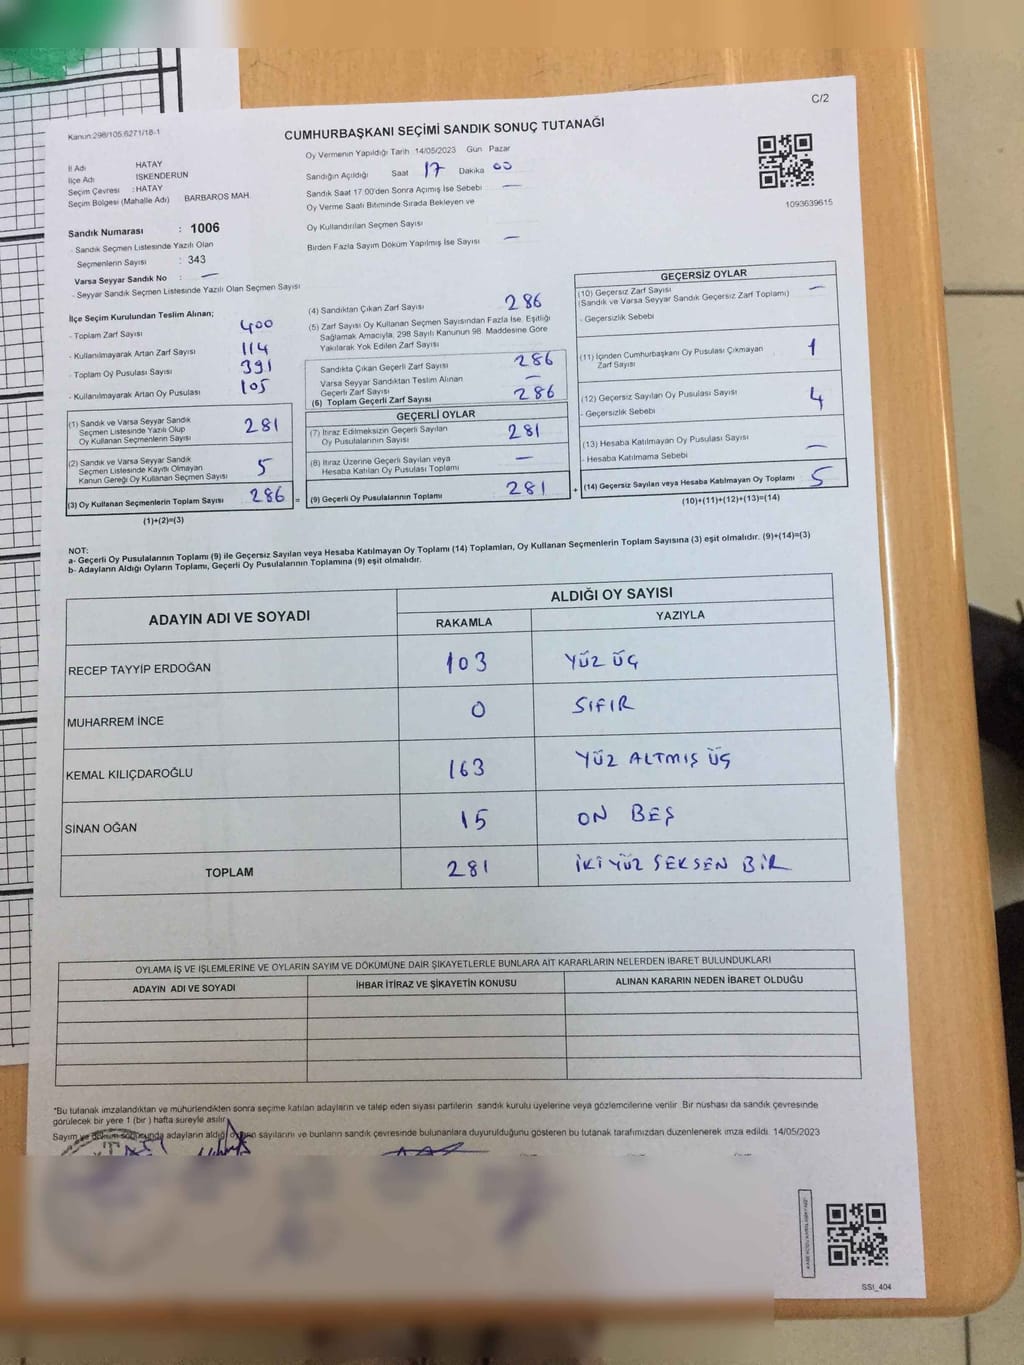 C/2
Kanun:298/105,6271/18-1
CUMHURBAŞKANI SEÇİMİ SANDIK SONUÇ TUTANAĞI
İl Adı HATAY
İlçe Adı İSKENDERUN
Seçim Çevresi : HATAY
Seçim Bölgesi (Mahalle Adı) BARBAROS MAH.
Sandık Numarası : 1006
- Sandık Seçmen Listesinde Yazılı Olan
Seçmenlerin Sayısı : 343
Varsa Seyyar Sandık No : —
- Seyyar Sandık Seçmen Listesinde Yazılı Olan Seçmen Sayısı
Oy Vermenin Yapıldığı Tarih 14/05/2023 Gün Pazar
Sandığın Açıldığı Saat 17 Dakika 00
Sandık Saat 17.00'den Sonra Açımış İse Sebebi —
Oy Verme Saati Bitiminde Sırada Bekleyen ve
Oy Kullandırılan Seçmen Sayısı
Birden Fazla Sayım Döküm Yapılmış İse Sayısı —
1093639615
İlçe Seçim Kurulundan Teslim Alınan;
- Toplam Zarf Sayısı 400
- Kullanılmayarak Artan Zarf Sayısı 114
- Toplam Oy Pusulası Sayısı 391
- Kullanılmayarak Artan Oy Pusulası 105
(1) Sandık ve Varsa Seyyar Sandık
Seçmen Listesinde Yazılı Olup
Oy Kullanan Seçmenlerin Sayısı 281
(2) Sandık ve Varsa Seyyar Sandık
Seçmen Listesinde Kayıtlı Olmayan
Kanun Gereği Oy Kullanan Seçmen Sayısı 5
(3) Oy Kullanan Seçmenlerin Toplam Sayısı 286 =
(1)+(2)=(3)
(4) Sandıktan Çıkan Zarf Sayısı 286
(5) Zarf Sayısı Oy Kullanan Seçmen Sayısından Fazla İse, Eşitliği
Sağlamak Amacıyla, 298 Sayılı Kanunun 98. Maddesine Göre
Yakılarak Yok Edilen Zarf Sayısı
Sandıkta Çıkan Geçerli Zarf Sayısı 286
Varsa Seyyar Sandıktan Teslim Alınan
Geçerli Zarf Sayısı —
(6) Toplam Geçerli Zarf Sayısı 286
GEÇERLİ OYLAR
(7) İtiraz Edilmeksizin Geçerli Sayılan
Oy Pusulalarının Sayısı 281
(8) İtiraz Üzerine Geçerli Sayılan veya
Hesaba Katılan Oy Pusulası Toplamı —
(9) Geçerli Oy Pusulalarının Toplamı 281 +
GEÇERSİZ OYLAR
(10) Geçersiz Zarf Sayısı —
(Sandık ve Varsa Seyyar Sandık Geçersiz Zarf Toplamı)
- Geçersizlik Sebebi
(11) İçinden Cumhurbaşkanı Oy Pusulası Çıkmayan
Zarf Sayısı 1
(12) Geçersiz Sayılan Oy Pusulası Sayısı 4
- Geçersizlik Sebebi
(13) Hesaba Katılmayan Oy Pusulası Sayısı —
- Hesaba Katılmama Sebebi
(14) Geçersiz Sayılan veya Hesaba Katılmayan Oy Toplamı 5
(10)+(11)+(12)+(13)=(14)
NOT:
a- Geçerli Oy Pusulalarının Toplamı (9) ile Geçersiz Sayılan veya Hesaba Katılmayan Oy Toplamı (14) Toplamları, Oy Kullanan Seçmenlerin Toplam Sayısına (3) eşit olmalıdır. (9)+(14)=(3)
b- Adayların Aldığı Oyların Toplamı, Geçerli Oy Pusulalarının Toplamına (9) eşit olmalıdır.
ADAYIN ADI VE SOYADI ALDIĞI OY SAYISI
RAKAMLA YAZIYLA
RECEP TAYYİP ERDOĞAN 103 YÜZ ÜÇ
MUHARREM İNCE 0 SIFIR
KEMAL KILIÇDAROĞLU 163 YÜZ ALTMIŞ ÜÇ
SİNAN OĞAN 15 ON BEŞ
TOPLAM 281 İKİ YÜZ SEKSEN BİR
OYLAMA İŞ VE İŞLEMLERİNE VE OYLARIN SAYIM VE DÖKÜMÜNE DAİR ŞİKAYETLERLE BUNLARA AİT KARARLARIN NELERDEN İBARET BULUNDUKLARI
ADAYIN ADI VE SOYADI İHBAR İTİRAZ VE ŞİKAYETİN KONUSU ALINAN KARARIN NEDEN İBARET OLDUĞU
*Bu tutanak imzalandıktan ve mühürlendikten sonra seçime katılan adayların ve talep eden siyasi partilerin sandık kurulu üyelerine veya gözlemcilerine verilir. Bir nüshası da sandık çevresinde
görülecek bir yere 1 (bir ) hafta süreyle asılır.
Sayım ve döküm sonucunda adayların aldığı oyların sayılarını ve bunların sandık çevresinde bulunanlara duyurulduğunu gösteren bu tutanak tarafımızdan düzenlenerek imza edildi. 14/05/2023
SSI_404